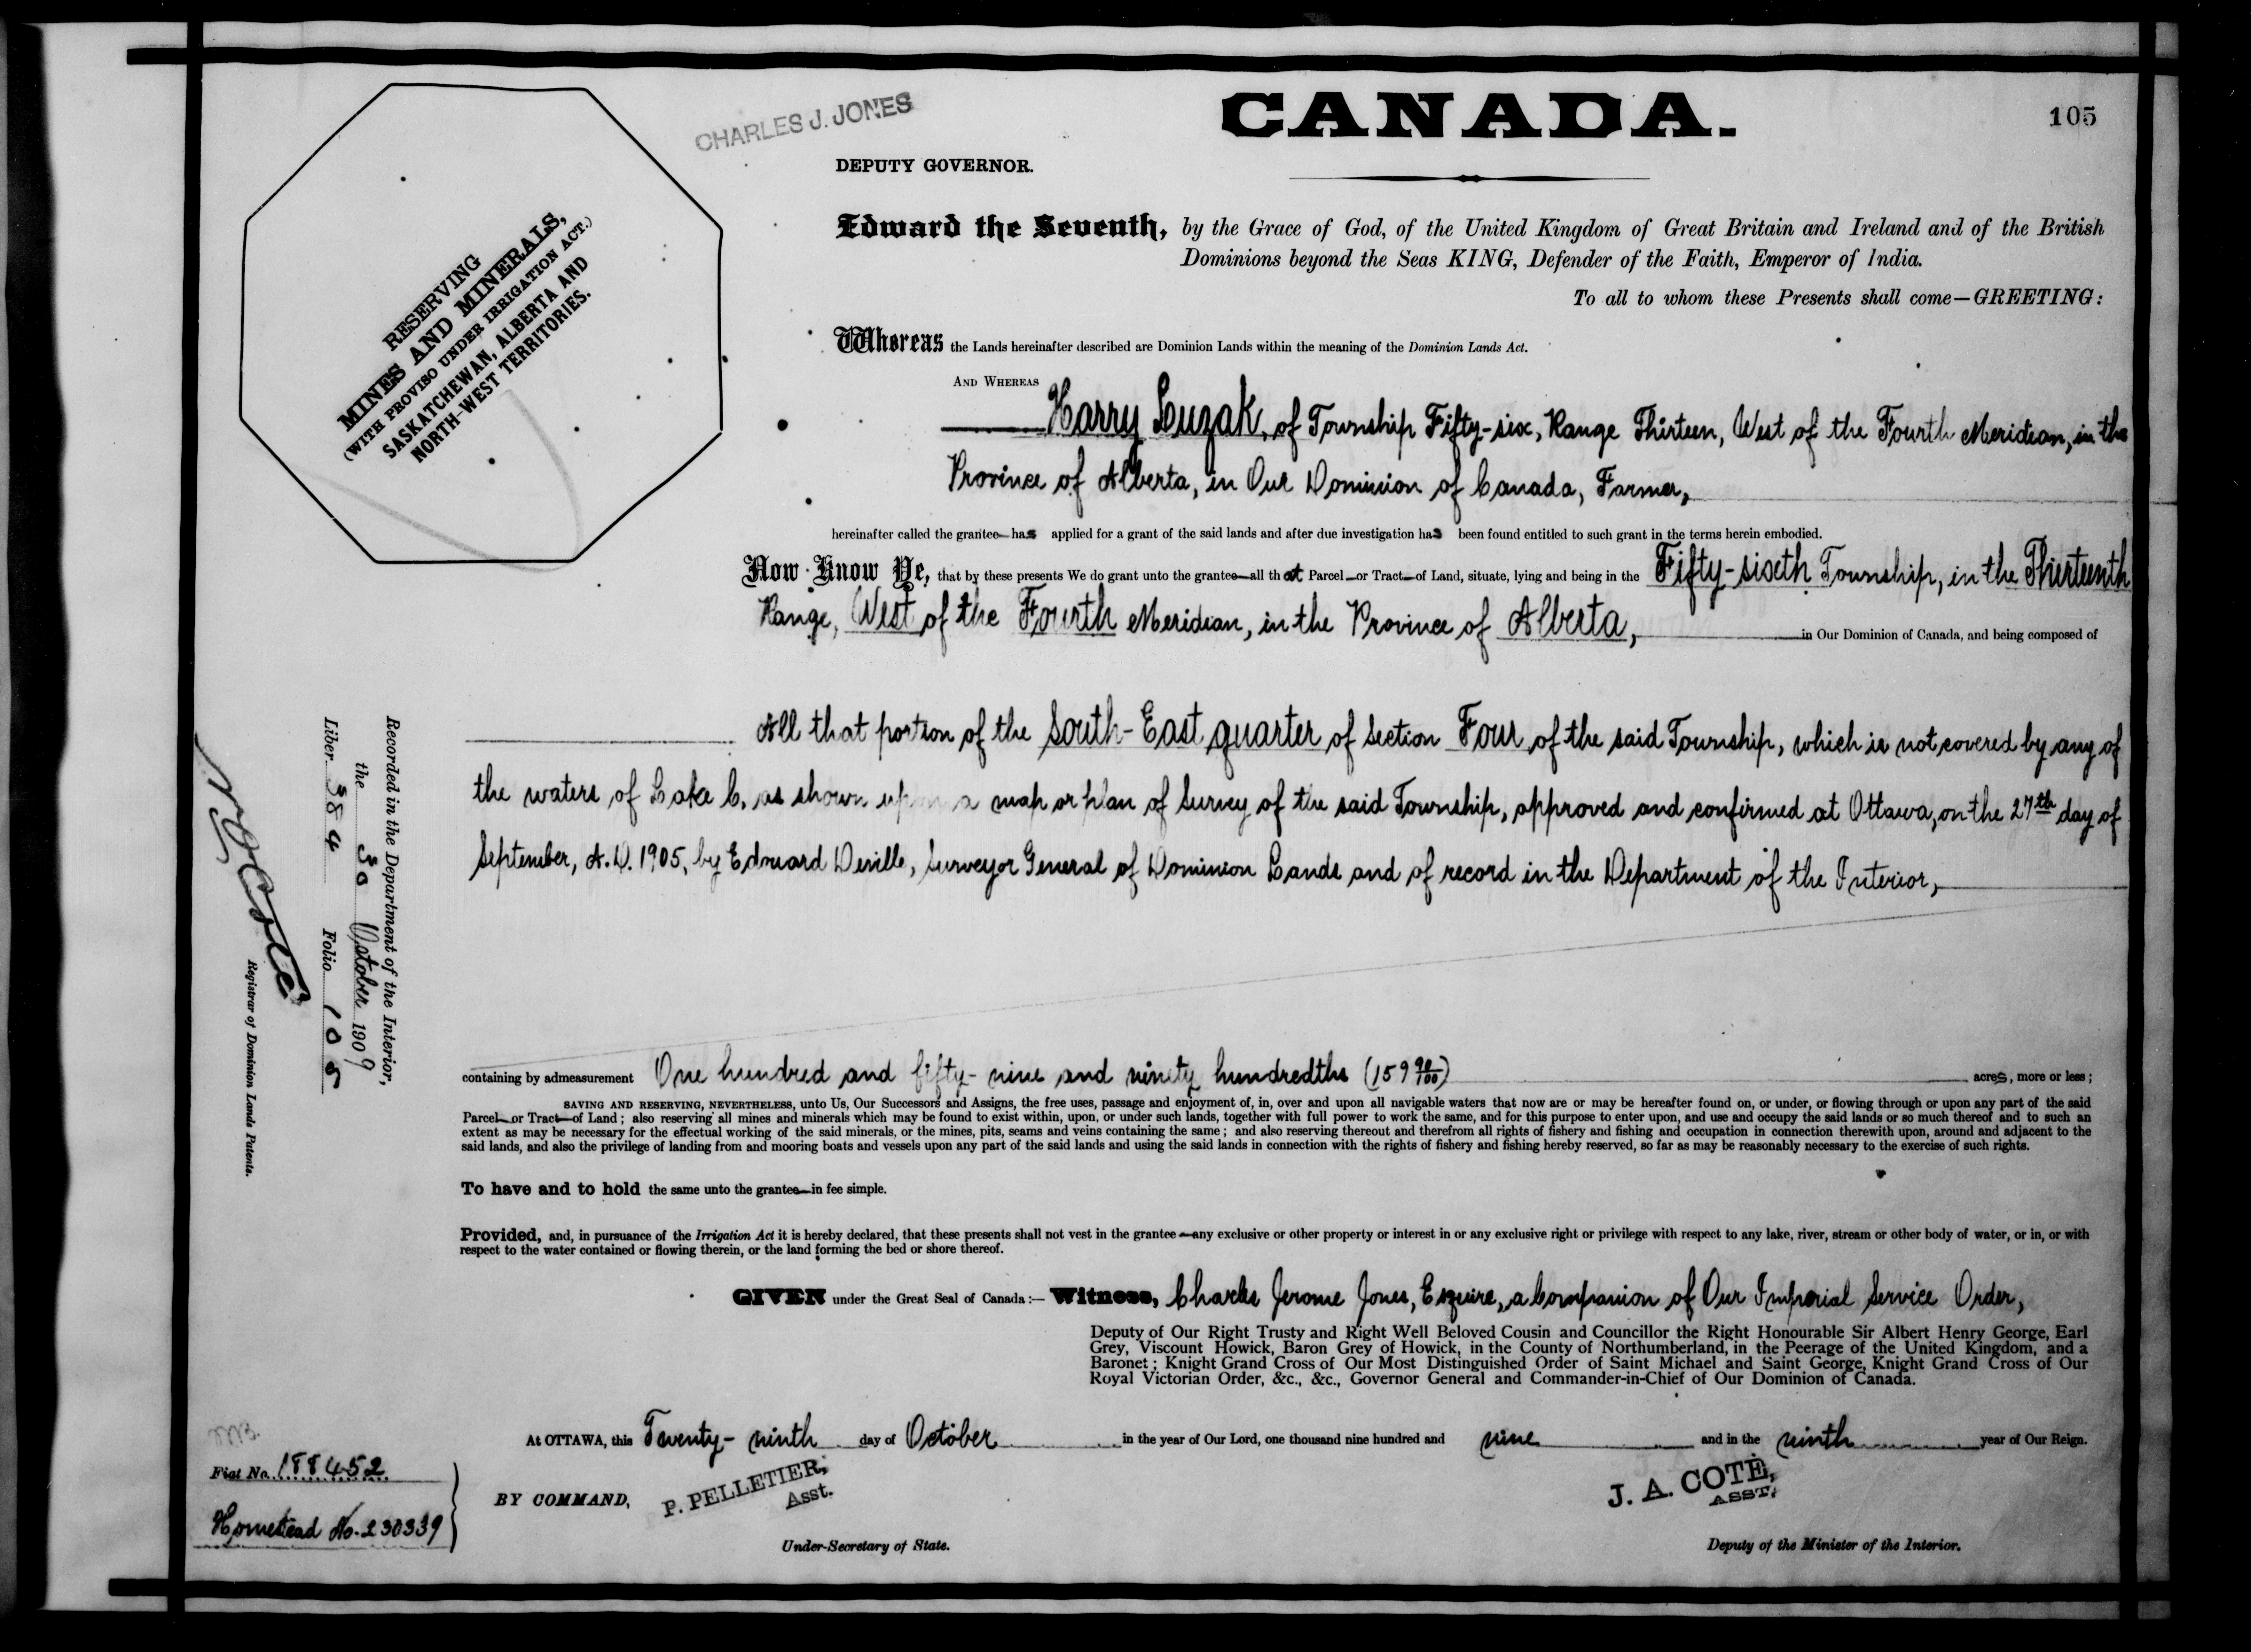 CHARLES J. JONES
CANADA.
105
DEPUTY GOVERNOR.
RESERVING
MINES AND MINERALS,
(WITH PROVISO UNDER IRRIGATION ACT.)
SASKATCHEWAN, ALBERTA AND
NORTH-WEST TERRITORIES.
Edward the Seventh, by the Grace of God, of the United Kingdom of Great Britain and Ireland and of the British
Dominions beyond the Seas KING, Defender of the Faith, Emperor of India.
To all to whom these Presents shall come—GREETING:
Whereas the Lands hereinafter described are Dominion Lands within the meaning of the Dominion Lands Act.
AND WHEREAS
Harry Luzak, of Township Fifty-six, Range Thirteen, West of the Fourth Meridian, in the
Province of Alberta, in Our Dominion of Canada, Farmer,
hereinafter called the grantee—has applied for a grant of the said lands and after due investigation has been found entitled to such grant in the terms herein embodied.
Now Know Ye, that by these presents We do grant unto the grantee—all that Parcel—or Tract—of Land, situate, lying and being in the Fifty-sixth Township, in the Thirteenth
Range, West of the Fourth Meridian, in the Province of Alberta, in Our Dominion of Canada, and being composed of
All that portion of the South-East quarter of Section Four of the said Township, which is not covered by any of
the waters of Lake C. as shown upon a map or plan of Survey of the said Township, approved and confirmed at Ottawa, on the 27th day of
September, A.D. 1905, by Edouard Deville, Surveyor General of Dominion Lands and of record in the Department of the Interior,
containing by admeasurement One hundred and fifty-nine and ninety hundredths (159 90/100) acres, more or less;
SAVING AND RESERVING, NEVERTHELESS, unto Us, Our Successors and Assigns, the free uses, passage and enjoyment of, in, over and upon all navigable waters that now are or may be hereafter found on, or under, or flowing through or upon any part of the said
Parcel—or Tract—of Land; also reserving all mines and minerals which may be found to exist within, upon, or under such lands, together with full power to work the same, and for this purpose to enter upon, and use and occupy the said lands or so much thereof and to such an
extent as may be necessary for the effectual working of the said minerals, or the mines, pits, seams and veins containing the same; and also reserving thereout and therefrom all rights of fishery and fishing and occupation in connection therewith upon, around and adjacent to the
said lands, and also the privilege of landing from and mooring boats and vessels upon any part of the said lands and using the said lands in connection with the rights of fishery and fishing hereby reserved, so far as may be reasonably necessary to the exercise of such rights.
To have and to hold the same unto the grantee—in fee simple.
Provided, and, in pursuance of the Irrigation Act it is hereby declared, that these presents shall not vest in the grantee—any exclusive or other property or interest in or any exclusive right or privilege with respect to any lake, river, stream or other body of water, or in, or with
respect to the water contained or flowing therein, or the land forming the bed or shore thereof.
GIVEN under the Great Seal of Canada:— Witness, Charles Jerome Jones, Esquire, a Companion of Our Imperial Service Order,
Deputy of Our Right Trusty and Right Well Beloved Cousin and Councillor the Right Honourable Sir Albert Henry George, Earl
Grey, Viscount Howick, Baron Grey of Howick, in the County of Northumberland, in the Peerage of the United Kingdom, and a
Baronet; Knight Grand Cross of Our Most Distinguished Order of Saint Michael and Saint George, Knight Grand Cross of Our
Royal Victorian Order, &c., &c., Governor General and Commander-in-Chief of Our Dominion of Canada.
At OTTAWA, this Twenty-ninth day of October in the year of Our Lord, one thousand nine hundred and nine and in the ninth year of Our Reign.
BY COMMAND,
P. PELLETIER,
Asst.
Under-Secretary of State.
J. A. COTÉ,
ASST.
Deputy of the Minister of the Interior.
Recorded in the Department of the Interior,
the 30 October 1909
Liber 384 Folio 105
N O Coté
Registrar of Dominion Lands Patents.
Fiat No. 188452
Homestead No. 230339